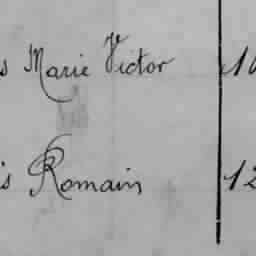 s Marie Victor 10
is Romain 12